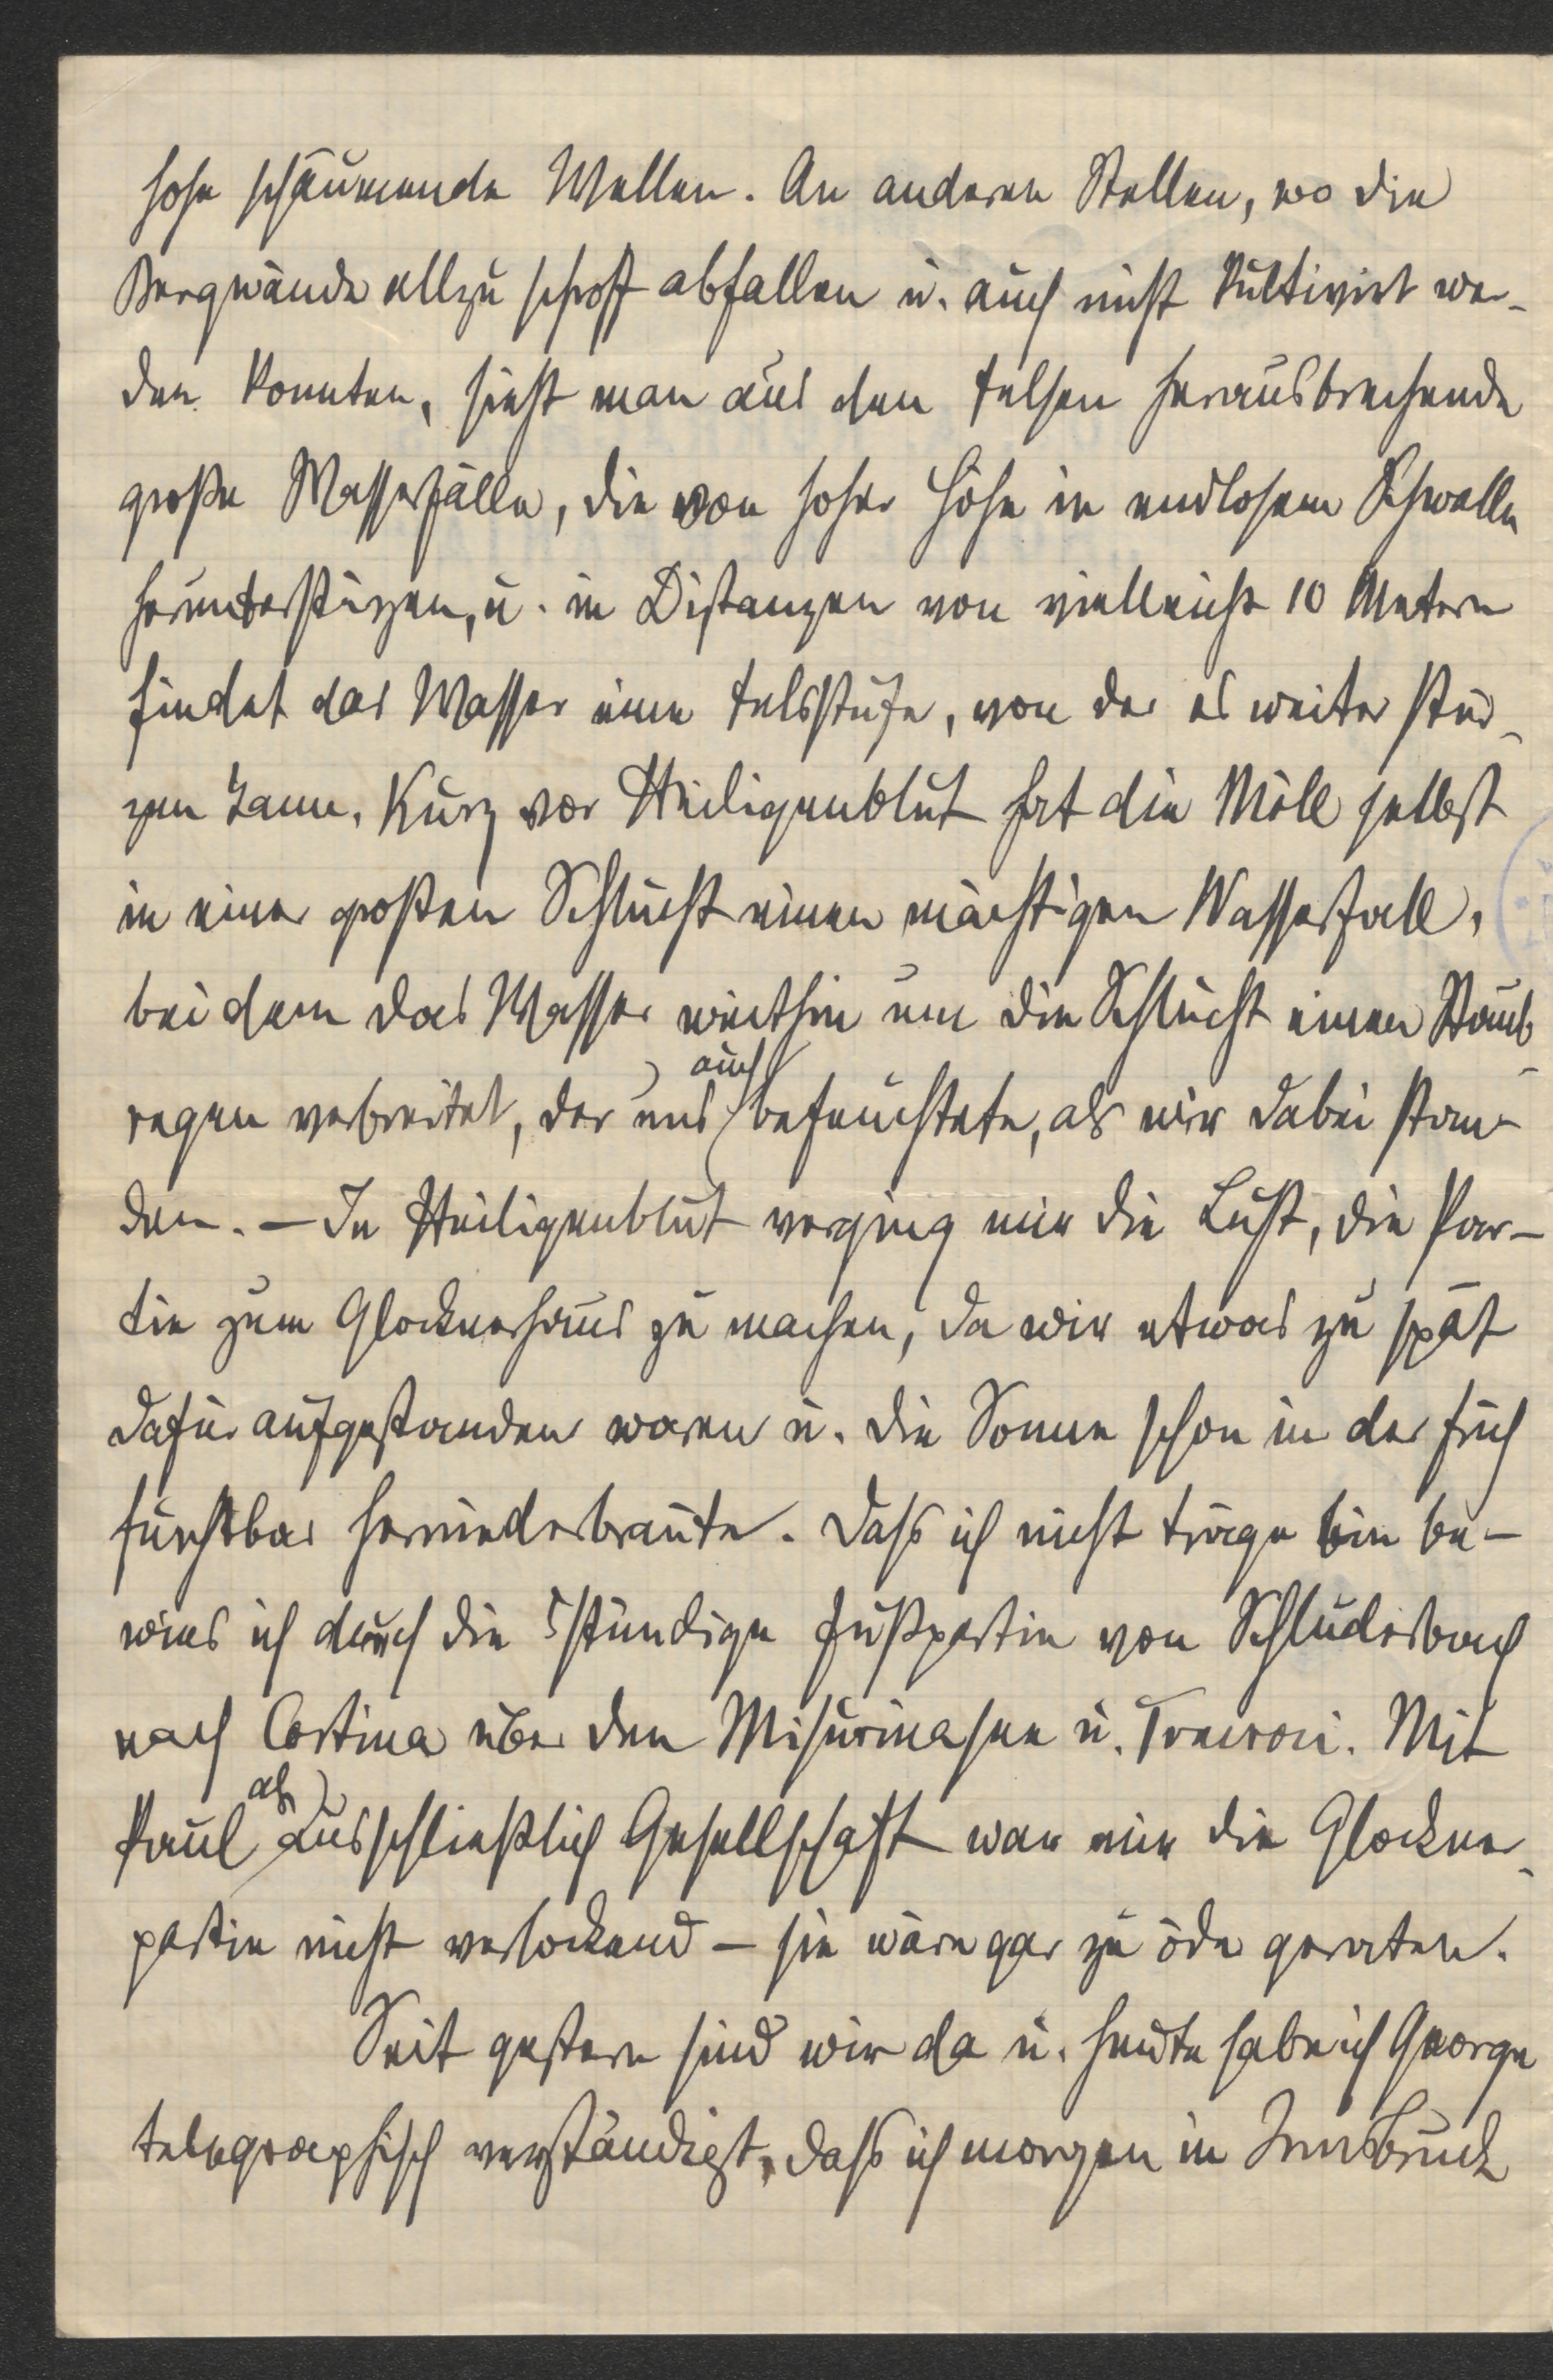 hohe schäumende Wellen. An anderen Stellen, wo die
Bergwände allzu schroff abfallen u. auch nicht kultivirt wer-
den konnten, sieht man aus den Felsen herausbrechende
große Wasserfälle, die von hoher Höhe in endlosem Schwalle
herunterstürzen, u. in Distanzen von vielleicht 10 Metern
findet das Wasser eine Felsstufe, von der es weiter stür-
zen kann. Kurz vor Heiligenblut hat die Möll selbst
in einer großen Schlucht einen mächtigen Wasserfall,
bei dem das Wasser weithin um die Schlucht einen Staub-
regen verbreitet, der uns auch befeuchtete, als wir dabei stan-
den. – In Heiligenblut verging mir die Lust, die Par-
tie zum Glocknerhaus zu machen, da wir etwas zu spät
dafür aufgestanden waren u. die Sonne schon in der früh
furchtbar herniederbrannte. Dass ich nicht träge bin be-
wies ich durch die 5stündige Fußpartie von Schluderbach
nach Cortina über den Misurinasee u. Trecroci. Mit
Paul als ausschließlich Gesellschaft war mir die Glockner-
partie nicht verlockend – sie wäre gar zu öde geraten.
Seit gestern sind wir da u. heute habe ich George
telegraphisch verständigt, dass ich morgen in Innsbruck